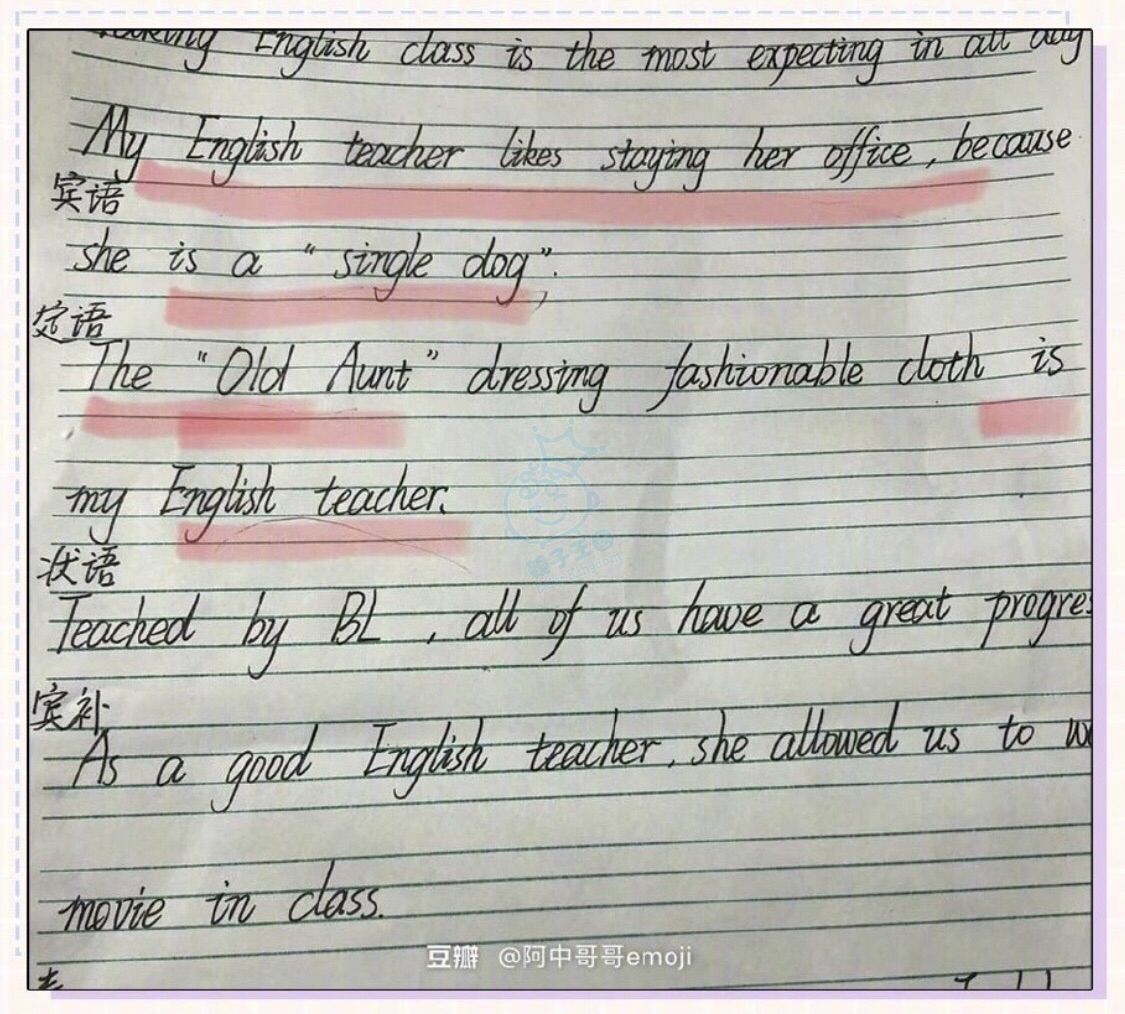 English class is the most expecting in all day
My English teacher likes staying her office, because
宾语
she is a "single dog".
定语
The "Old Aunt" dressing fashionable cloth is
my English teacher.
状语
Teached by BL, all of us have a great progres
宾补
As a good English teacher, she allowed us to
movie in class.
豆瓣 @阿中哥哥emoji